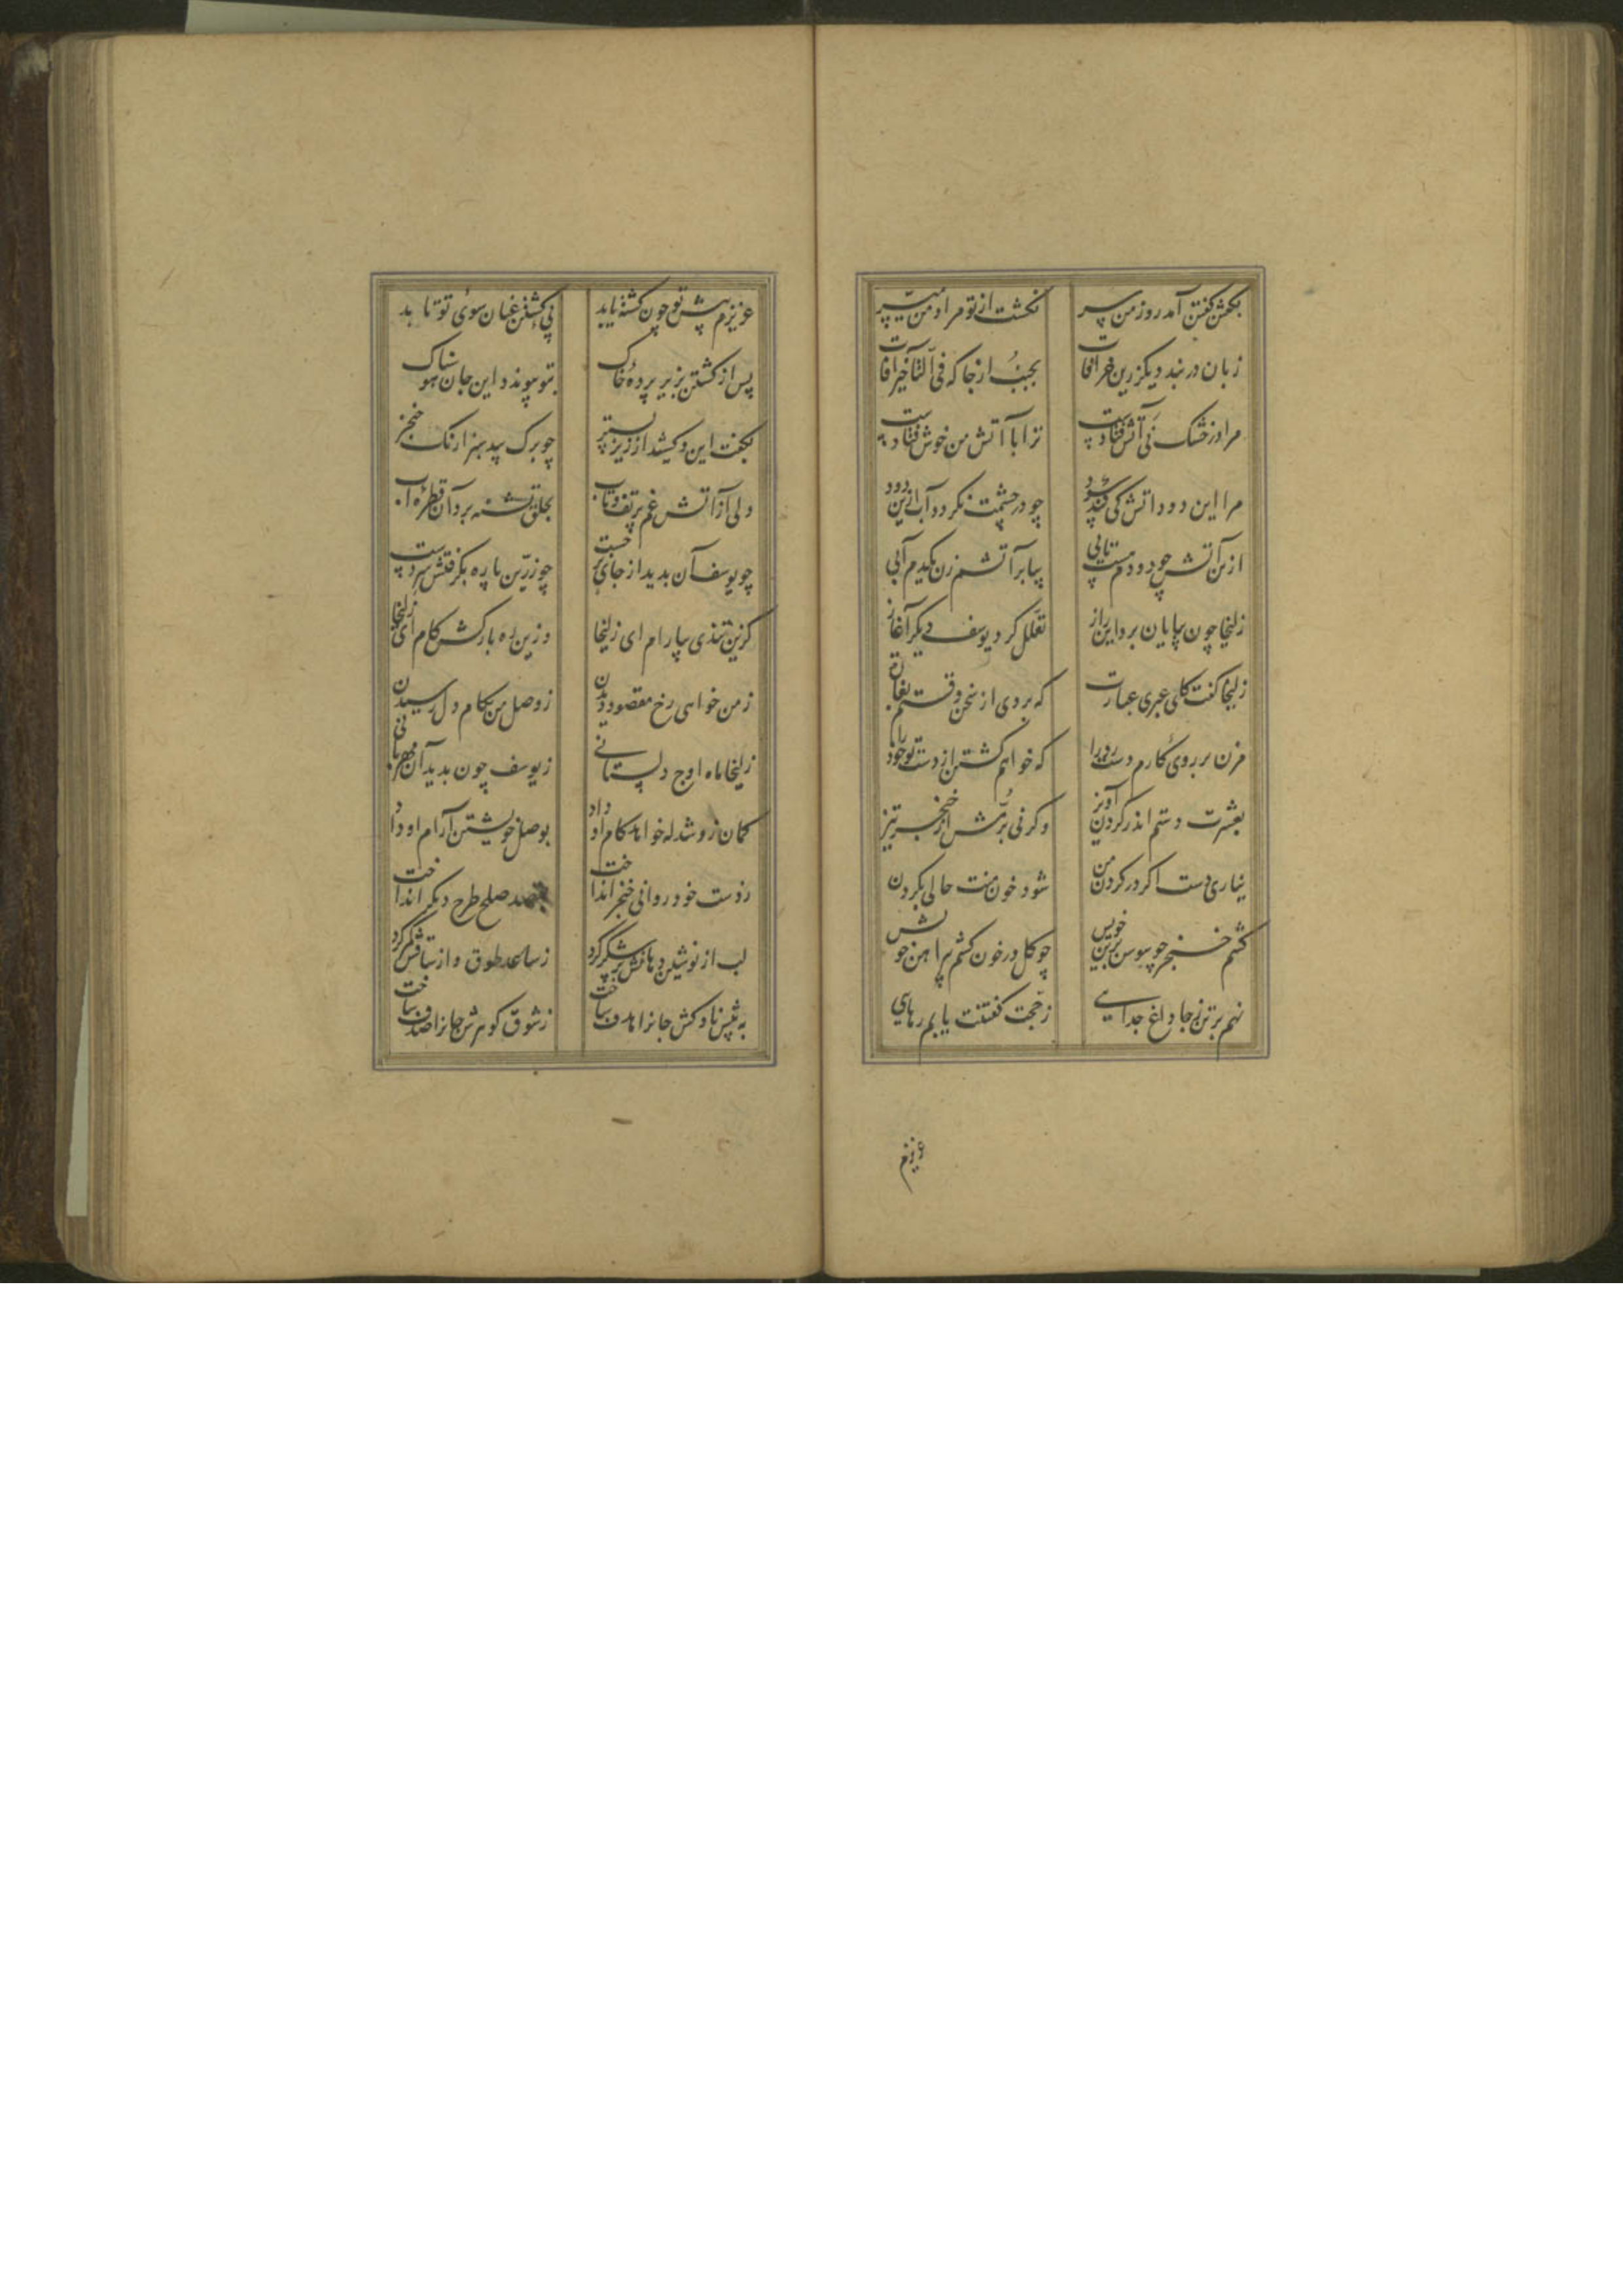 بگفتن گفتن آمد روز من بسر نگشت از تو مراد من میسر
زبان در بند دیگر زین خرافات بجنب از جا که فی التأخیر آفات
مرا در خشک نی آتش فتادست ترا با آتش من خوش فتادست
مرا این دود آتش کی کند سود چو در چشمت نگردد آب ازین دود
ازین آتش چو دودم هست تابی بیا بر آتشم زن یکدم آبی
زلیخا چون بپایان برد این راز تعلل کرد یوسف دیگر آغاز
زلیخا گفت کای عبری عبارت که بردی از سخن وقتم بغارت
مزن بر روی کارم دست رد را که خواهم کشتن از دست تو خود را
بعشرت دستم اندر گردن آویز وگرنی برمش از خنجر تیز
نیاری دست اگر در گردن من شود خون منت حالی بگردن
کشم خنجر چو سوسن بر تن خویش چو گل در خون کشم پیراهن خویش
نهم بر تن ز جان داغ جدایی ز حجت گفتنت یابم رهایی
عزیزم
عزیزم پیش تو چون کشته یابد پی کشتن عنان سوی تو تابد
پس از کشتن بزیر پرده خاک بتو پیوندد این جان هوسناک
بگفت این و کشید از زیر بستر چو برگ بید سبزارنگ خنجر
دلی از آتش غم پر تف و تاب بحلق تشنه برد آن قطره آب
چو یوسف آن بدید از جای برجست چو زرین یاره بگرفتش سر دست
کزین تندی بیارام ای زلیخا وزین ره بازکش کام ای زلیخا
ز من خواهی رخ مقصود دیدن ز وصل من بکام دل رسیدن
زلیخا ماه اوج دلستانی ز یوسف چون بدید آن مهربانی
گمان زو شد که خواهد کام او داد بوصل خویشتن آرام او داد
ز دست خود روانی خنجر انداخت بقصد صلح طرح دیگر انداخت
لب از نوشین دهانش پر شکر کرد ز ساعد طوق و از ساقش کمر کرد
به پیش ناوکش جانرا هدف ساخت ز شوق گوهرش جانرا صدف ساخت